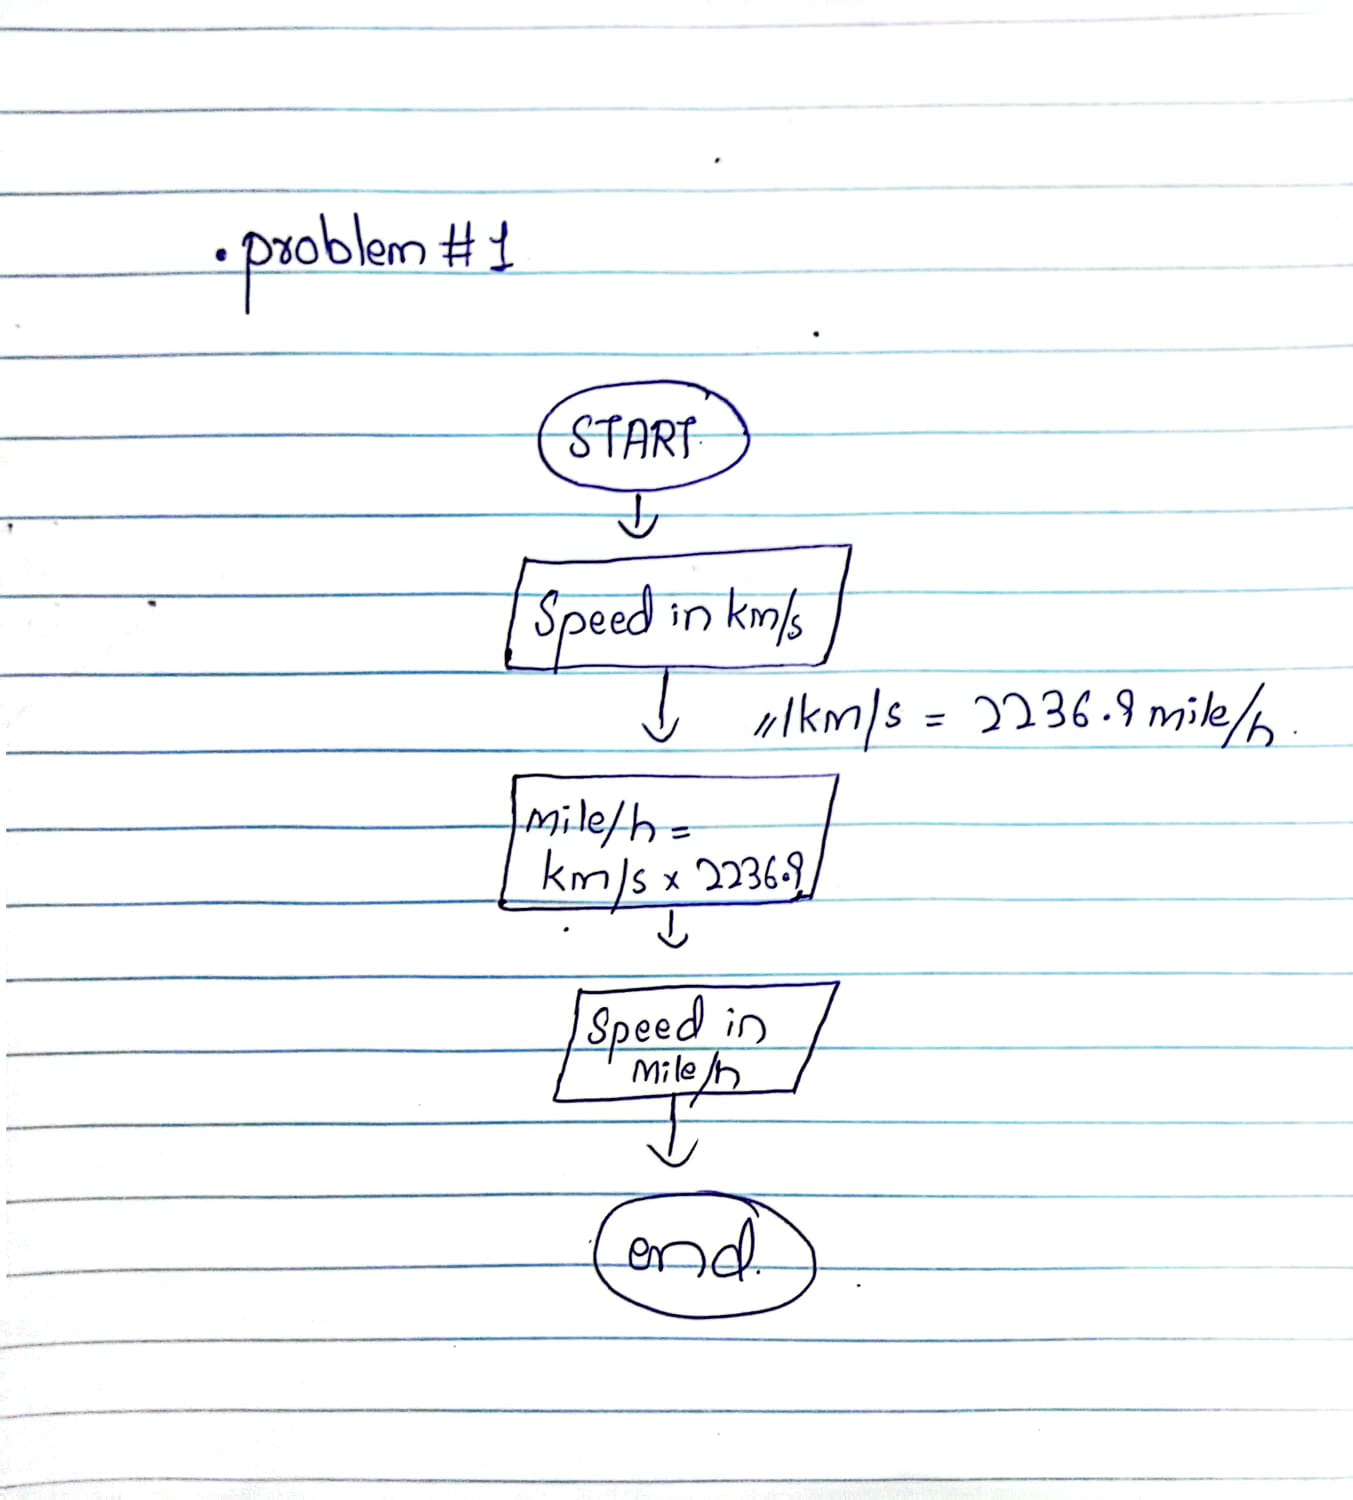 . problem #1
START.
Speed in km/s
//1km/s = 2236.9 mile/h.
mile/h =
km/s x 2236.9
Speed in
Mile/h
end.